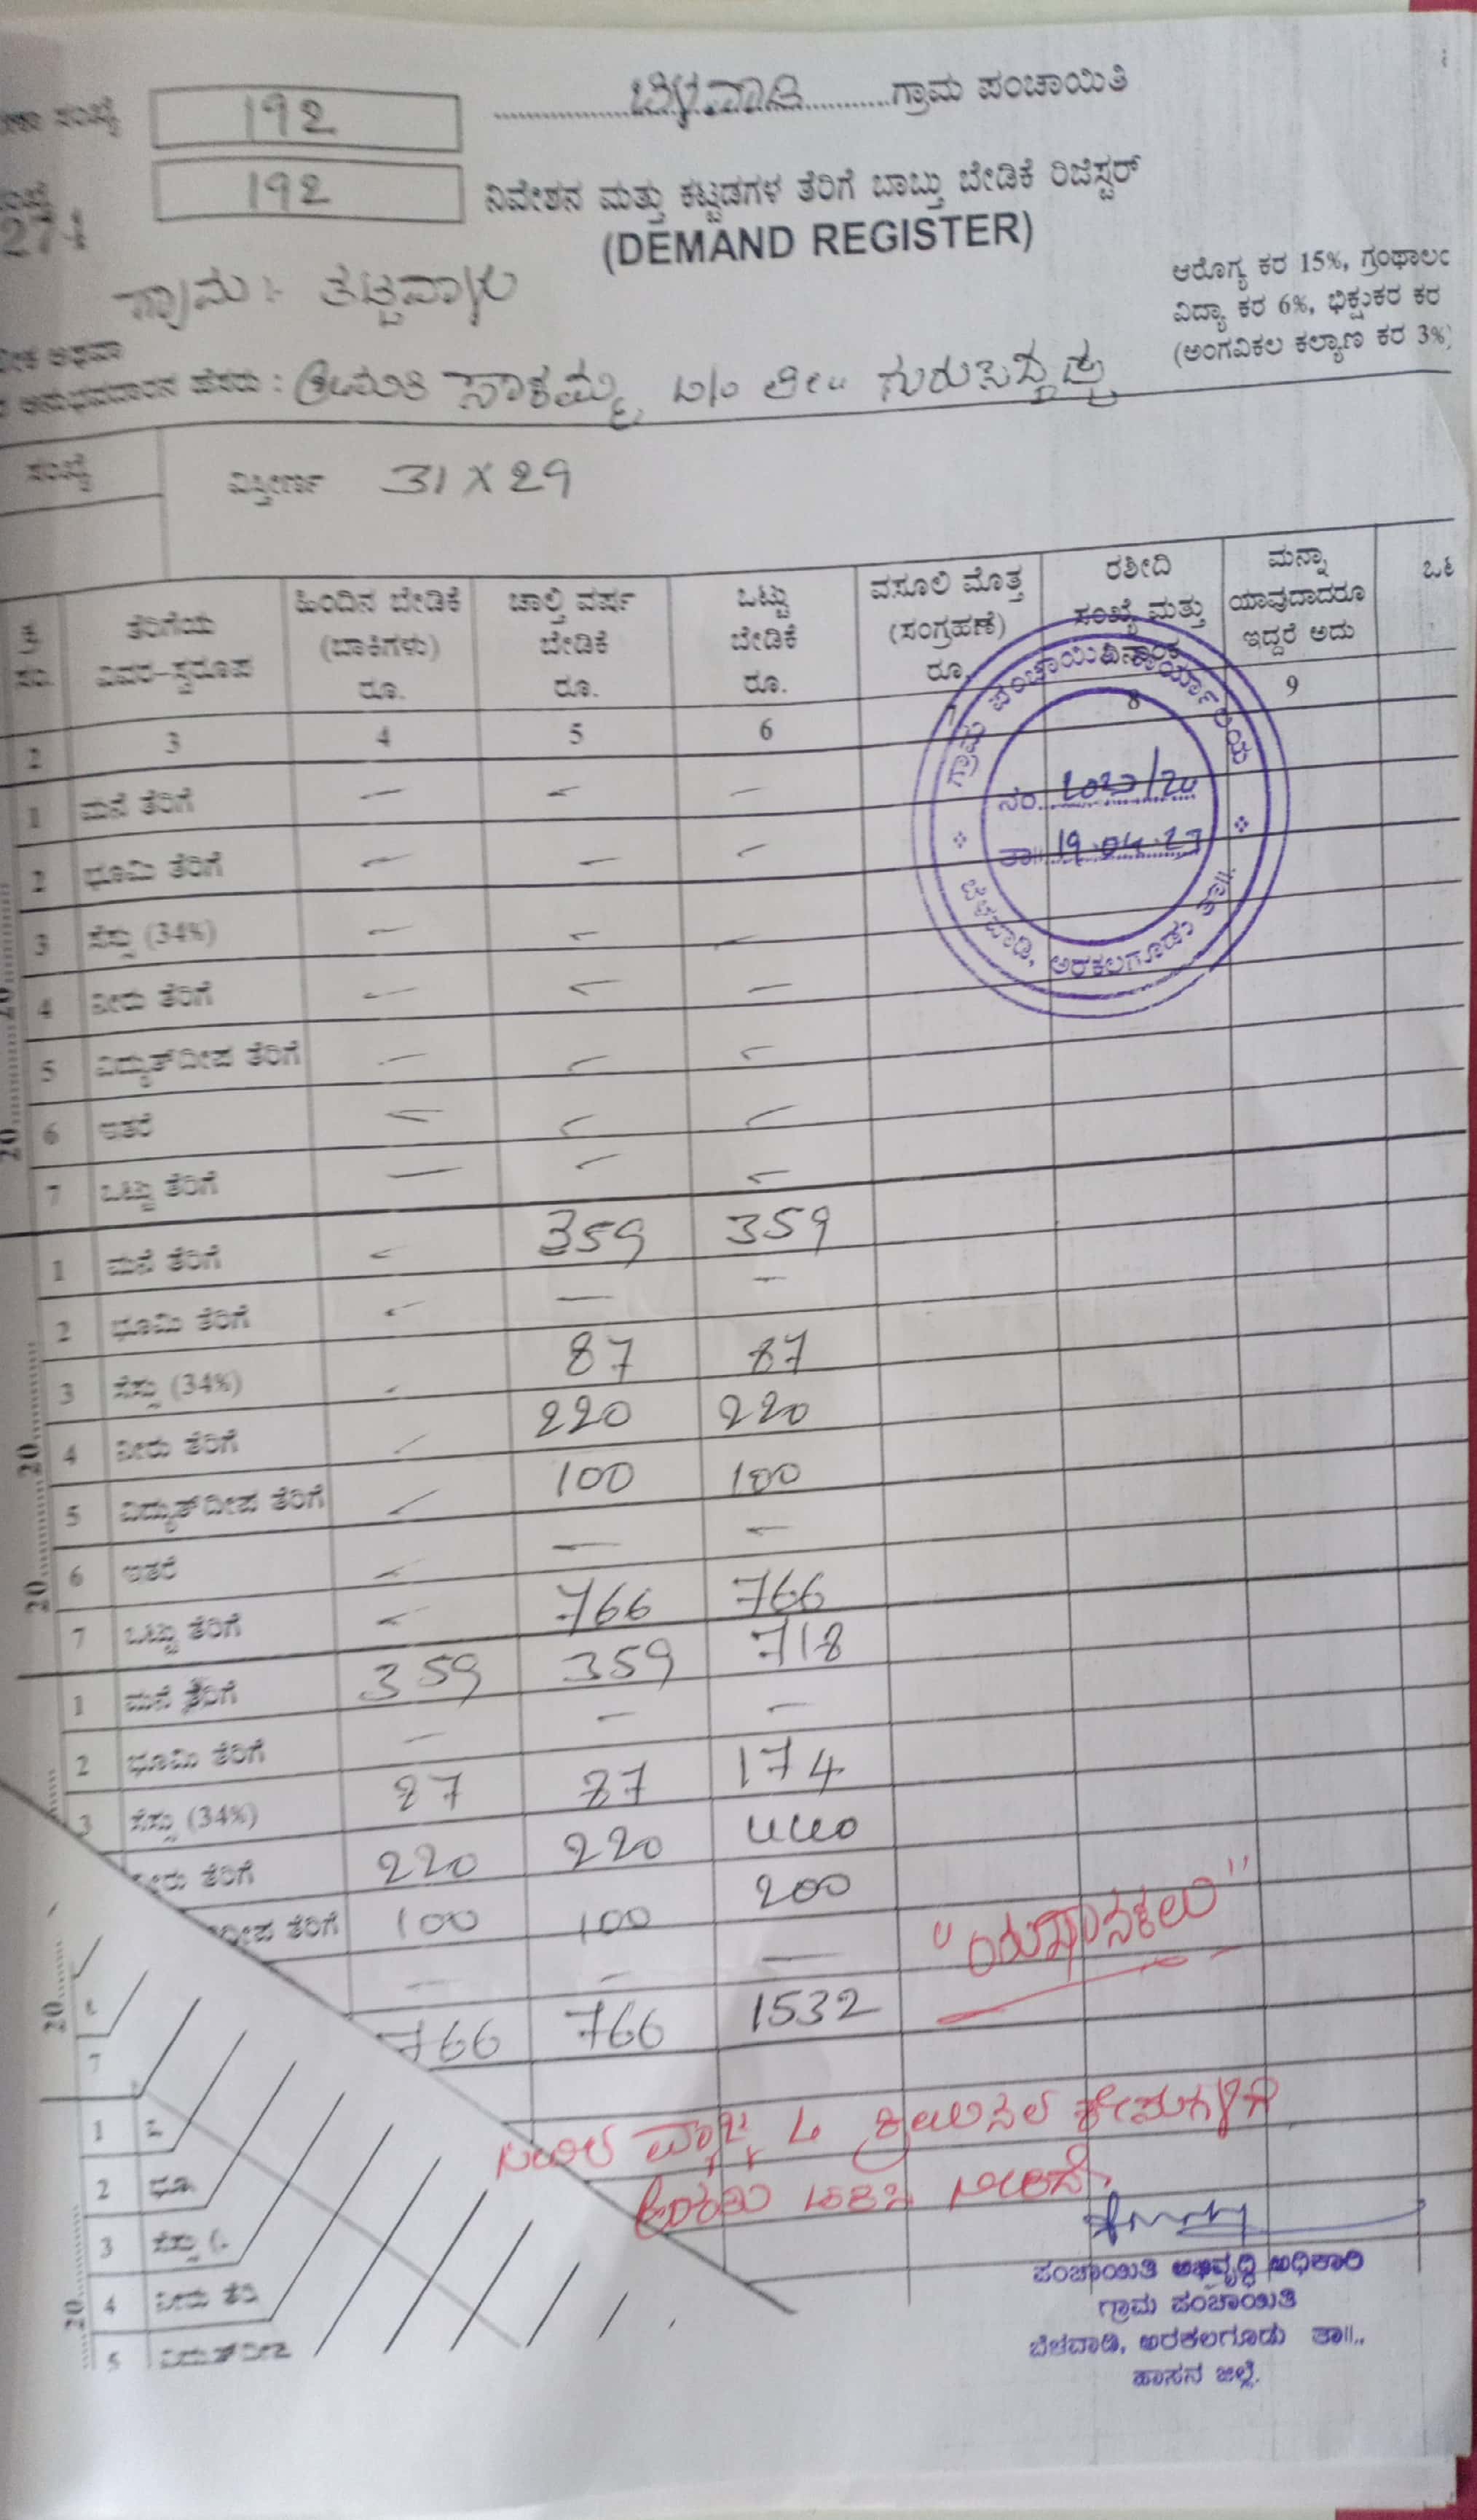 ಸಂಖ್ಯೆ 192
ಬೆಳವಾಡಿ ಗ್ರಾಮ ಪಂಚಾಯಿತಿ
192
ನಿವೇಶನ ಮತ್ತು ಕಟ್ಟಡಗಳ ತೆರಿಗೆ ಬಾಬ್ತು ಬೇಡಿಕೆ ರಿಜಿಸ್ಟರ್
(DEMAND REGISTER)
ಆರೋಗ್ಯ ಕರ 15%, ಗ್ರಂಥಾಲಂ
ವಿದ್ಯಾ ಕರ 6%, ಭಿಕ್ಷುಕರ ಕರ
(ಅಂಗವಿಕಲ ಕಲ್ಯಾಣ ಕರ 3%)
ಗ್ರಾಮ :- ತಟ್ಟವಾಳು
ಅಥವಾ
ಅನುಭವದಾರನ ಹೆಸರು : ಶ್ರೀಮತಿ ಸಾಕಮ್ಮ ಗುರುಸಿದ್ದಪ್ಪ
ಸಂಖ್ಯೆ
ವಿಸ್ತೀರ್ಣ 31 X 29
ಕ್ರ ಸಂ. ತೆರಿಗೆಯ ವಿವರ-ಸ್ವರೂಪ ಹಿಂದಿನ ಬೇಡಿಕೆ (ಬಾಕಿಗಳು) ರೂ. ಚಾಲ್ತಿ ವರ್ಷ ಬೇಡಿಕೆ ರೂ. ಒಟ್ಟು ಬೇಡಿಕೆ ರೂ. ವಸೂಲಿ ಮೊತ್ತ (ಸಂಗ್ರಹಣೆ) ರೂ. ರಶೀದಿ ಸಂಖ್ಯೆ ಮತ್ತು ದಿನಾಂಕ ಮನ್ನಾ ಯಾವುದಾದರೂ ಇದ್ದರೆ ಅದು
2 3 4 5 6 7 8 9
ಗ್ರಾಮ ಪಂಚಾಯಿತಿ ಕಾರ್ಯಾಲಯ
ನಂ.
ತಾ॥ 19.04.23
ಬೆಳವಾಡಿ, ಅರಕಲಗೂಡು ತಾ॥
1 ಮನೆ ತೆರಿಗೆ — — —
2 ಭೂಮಿ ತೆರಿಗೆ — — —
3 ಸೆಸ್ಸು (34%) — — —
4 ನೀರು ತೆರಿಗೆ — — —
5 ವಿದ್ಯುತ್‌ದೀಪ ತೆರಿಗೆ — — —
6 ಇತರೆ — — —
7 ಒಟ್ಟು ತೆರಿಗೆ — — —
1 ಮನೆ ತೆರಿಗೆ — 359 359
2 ಭೂಮಿ ತೆರಿಗೆ — — —
3 ಸೆಸ್ಸು (34%) — 87 87
4 ನೀರು ತೆರಿಗೆ — 220 220
5 ವಿದ್ಯುತ್‌ದೀಪ ತೆರಿಗೆ — 100 100
6 ಇತರೆ — — —
7 ಒಟ್ಟು ತೆರಿಗೆ — 766 766
1 ಮನೆ ತೆರಿಗೆ 359 359 718
2 ಭೂಮಿ ತೆರಿಗೆ — — —
3 ಸೆಸ್ಸು (34%) 87 87 174
ನೀರು ತೆರಿಗೆ 220 220 440
ದೀಪ ತೆರಿಗೆ 100 100 200
— — —
7 766 766 1532
1
2 ಭೂ
3 ಸೆಸ್ಸು (
4 ನೀರು ತೆರಿ
5 ವಿದ್ಯುತ್‌ದೀಪ
ಪಂಚಾಯಿತಿ ಅಭಿವೃದ್ಧಿ ಅಧಿಕಾರಿ
ಗ್ರಾಮ ಪಂಚಾಯಿತಿ
ಬೆಳವಾಡಿ, ಅರಕಲಗೂಡು ತಾ॥.,
ಹಾಸನ ಜಿಲ್ಲೆ.